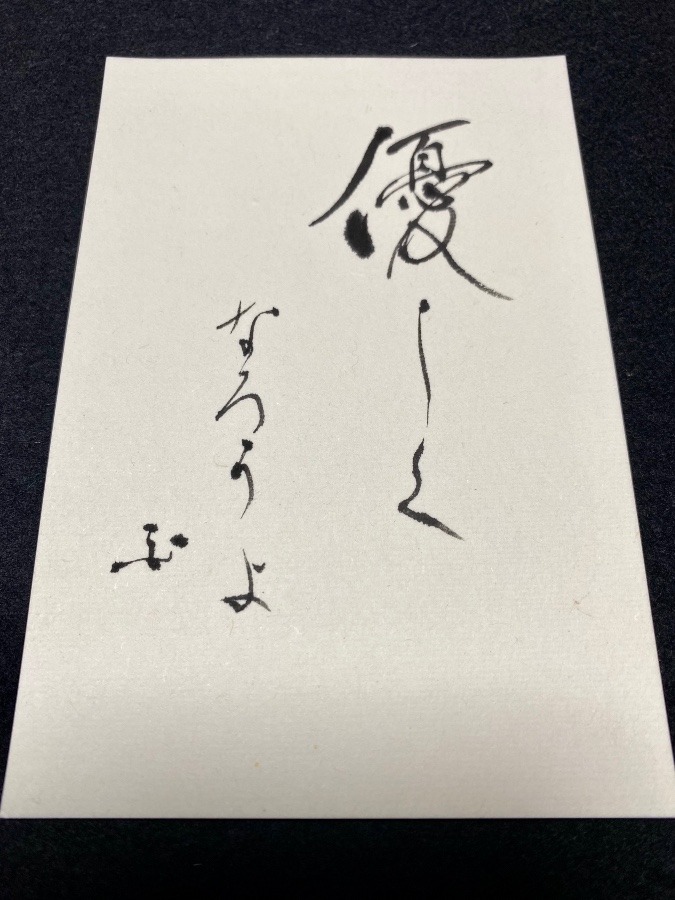 優しく
なろうよ